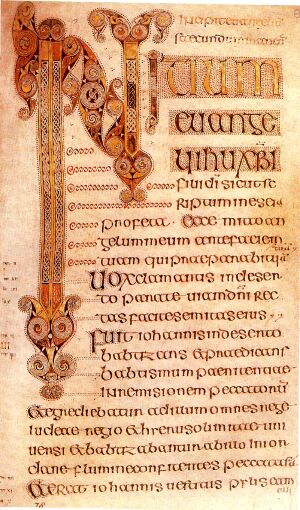 INITIUM
EUANGE
LII IHU XPI
FILII DI SICUT SC
profeta Ecce mitto an
gelum meum ante faciem
tuam qui
UOX clamantis in deser
to parate uiam dni rec
tas facite semitas eius
FUIT iohannis in deserto
babtizans et praedicans
babtismum paenitentiae
in remisionem peccatorū
Et egrediebatur ad illum omnes
iudeae regio et hierusolimitae uni
uersi et babtizabantur ab illo in ior
dane flumine confitentes peccata sua
Et erat iohannis uestitus pilis cam